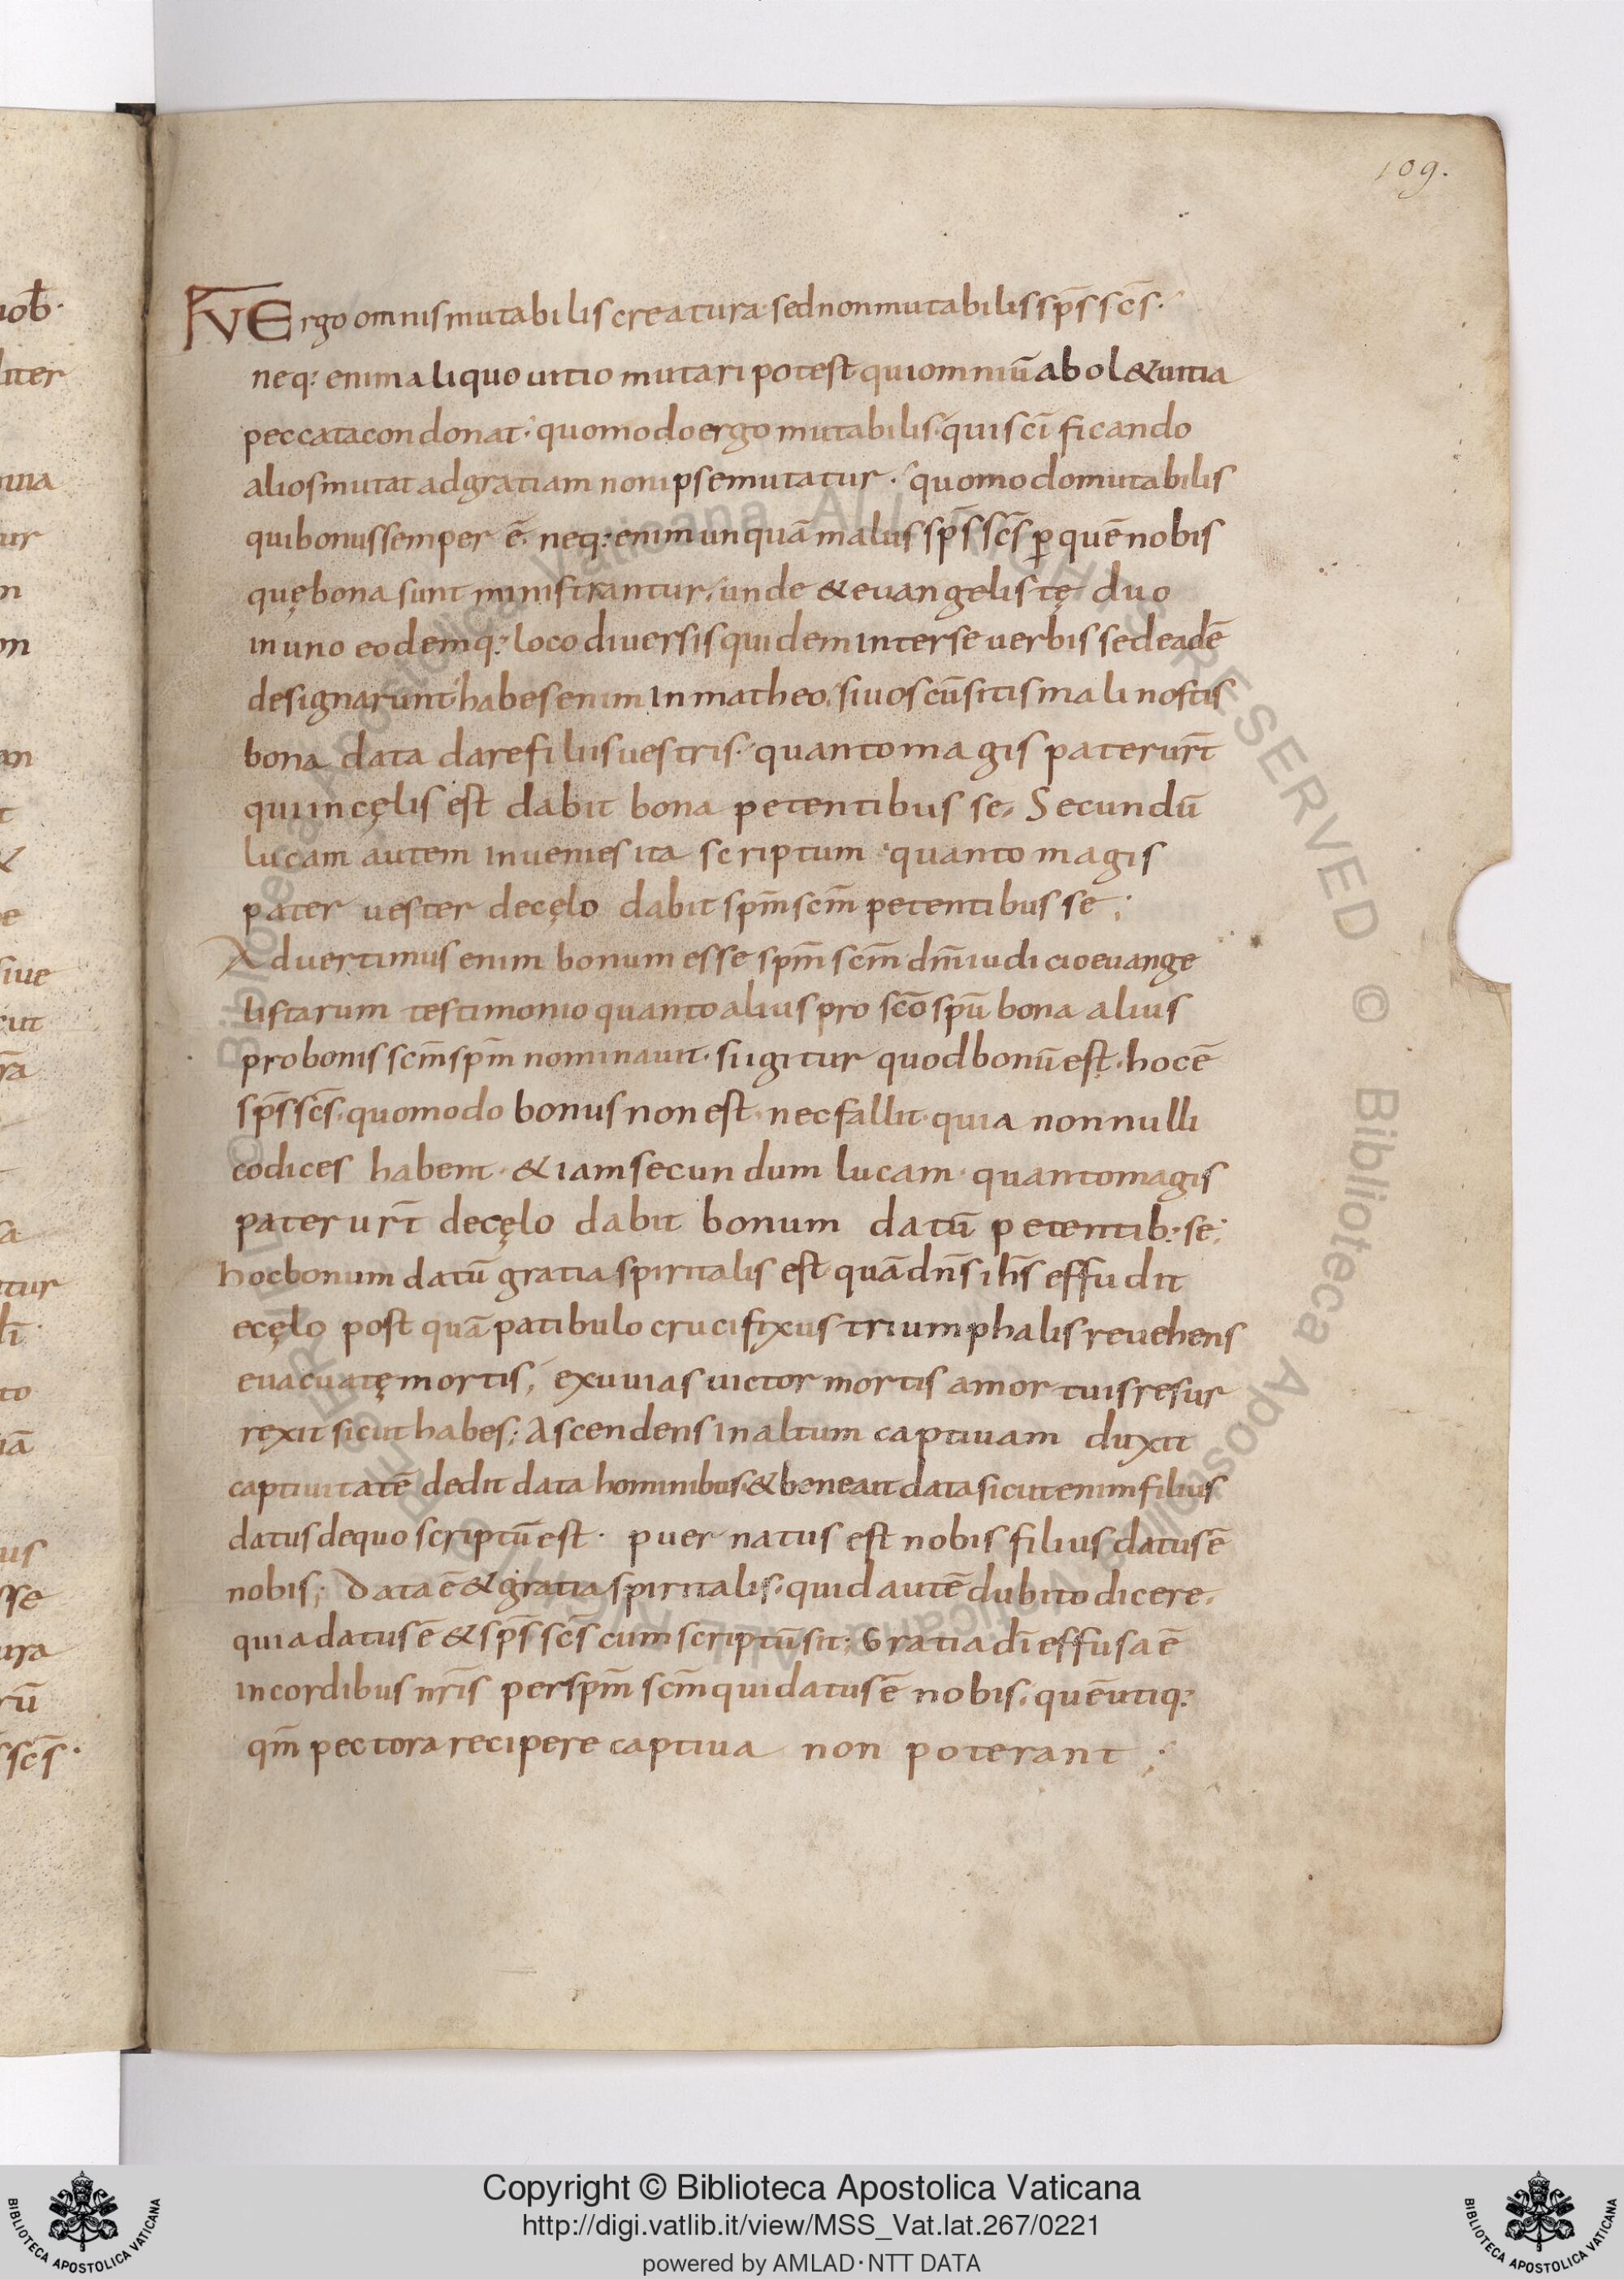 109.
ΛVE ergo omnis mutabilis creatura· sed non mutabilis sp̄s sc̄s·
neq: enim aliquo uitio mutari potest qui omniū abol& uitia
peccata condonat· quomodo ergo mutabilis· qui sc̄ificando
alios mutat ad gratiam non ipse mutatur· quomodo mutabilis
qui bonus semper ē· neq: enim unquā malus sp̄s sc̄s ꝑ quē nobis
quę bona sunt ministrantur, unde & euangelistę duo
in uno eodemq: loco diuersis quidem inter se uerbis sed eadē
designarunt habes enim in matheo, si uos cū sitis mali nostis
bona data dare filiis uestris· quanto magis pater ur̄t
qui in cęlis est dabit bona petentibus se, Secundū
lucam autem inuenies ita scriptum· quanto magis
pater uester de cęlo dabit sp̄m sc̄m petentibus se;
Aduertimus enim bonum esse sp̄m sc̄m dn̄i iudicio euange
listarum testimonio quanto alius pro sc̄o sp̄u bona alius
pro bonis sc̄m sp̄m nominauit· si igitur quod bonū est· hoc ē
sp̄s sc̄s· quomodo bonus non est· nec fallit· quia nonnulli
codices habent· & iam secundum lucam· quanto magis
pater ur̄t de cęlo dabit bonum datū petentib: se;
hoc bonum datū gratia spiritalis est quā dn̄s ih̄s effudit
e cęlo post quā patibulo crucifixus triumphalis reuehens
euacuatę mortis, exuuias uictor mortis amortuis resur
rexit sicut habes; Ascendens in altum captiuam duxit
captiuitatē dedit data hominibus· & bene ait data sicut enim filius
datus de quo scriptū est· puer natus est nobis filius datus ē
nobis; data ē & gratia spiritalis· quid autē dubito dicere,
quia datus ē & sp̄s sc̄s cum scriptū sit; Gratia dī effusa ē
in cordibus nr̄is per sp̄m sc̄m qui datus ē nobis, quē utiq:
qm̄ pectora recipere captiua non poterant;
nob̄·
liter
ur
n
e
siue
cut
r̄a
tur
to
iā
us
sse
ura
rū
sc̄s·
Copyright © Biblioteca Apostolica Vaticana
http://digi.vatlib.it/view/MSS_Vat.lat.267/0221
powered by AMLAD·NTT DATA
BIBLIOTECA APOSTOLICA VATICANA
BIBLIOTECA APOSTOLICA VATICANA